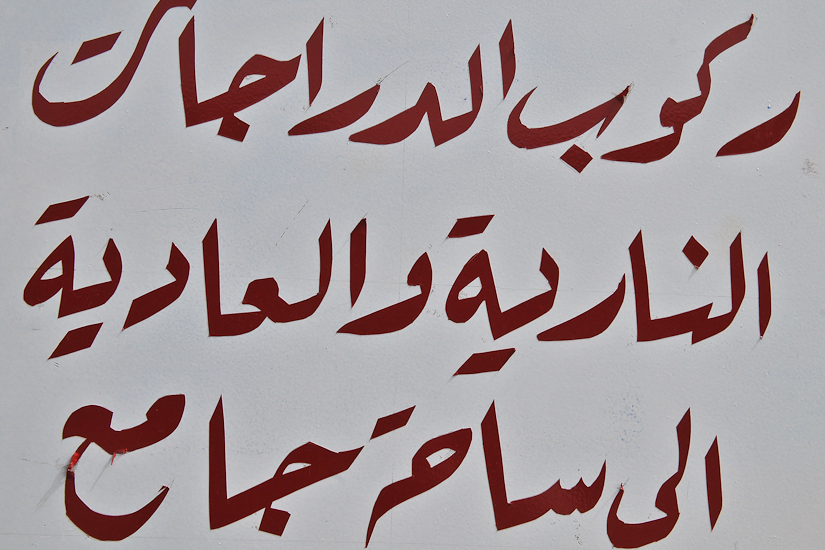 ركوب الدراجات
النارية والعادية
الى ساحة جامع